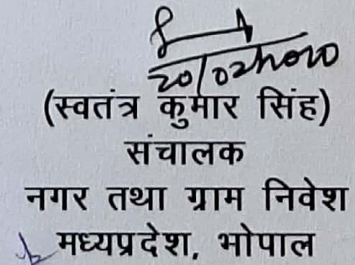 20/02/2020
(स्वतंत्र कुमार सिंह)
संचालक
नगर तथा ग्राम निवेश
मध्यप्रदेश, भोपाल